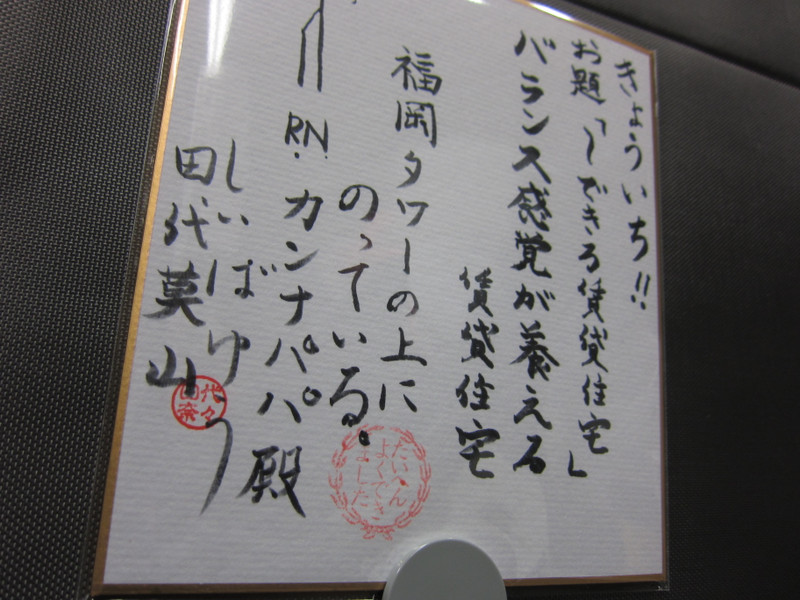 きょういち!!
お題「〜できる賃貸住宅」
バランス感覚が養える
賃貸住宅
福岡タワーの上に
のっている。
RN.カンナパパ殿
しいばゆう
田代莫山
たいへん
よくでき
ました
代々